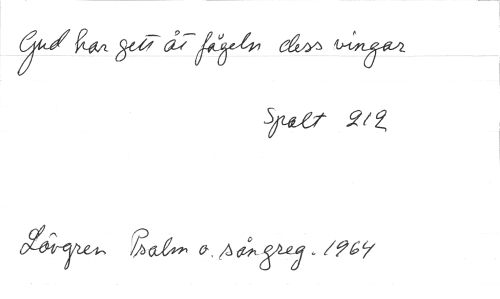 Gud har gett åt fågeln dess vingar
Spalt 212
Lövgren Psalm o. sångreg. 1964